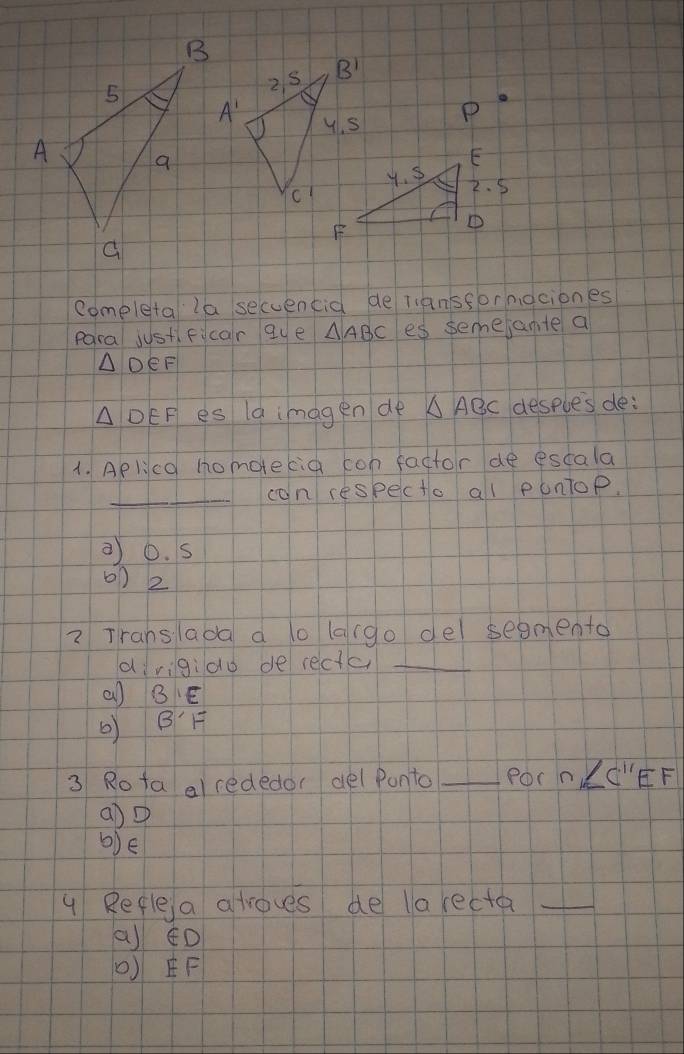 B
5
A
9
C
2,5
B'
A'
4.5
C'
P
E
4.5
2.5
F
D
Completa la secuencia de transformaciones
Para justificar que △ABC es semejante a
△ DEF
△ DEF es la imagen de △ ABC después de:
1. Aplica homotecia con factor de escala
______ con respecto al punto P.
a) 0.5
b) 2
2 Translada a lo largo del segmento
dirigido de recta ____
a) B'E
b) B'F
3 Rota alrededor del Punto ____ Por ∠C"EF
a) D
b) E
4 Refleja atraves de la recta ___
a) ED
b) EF